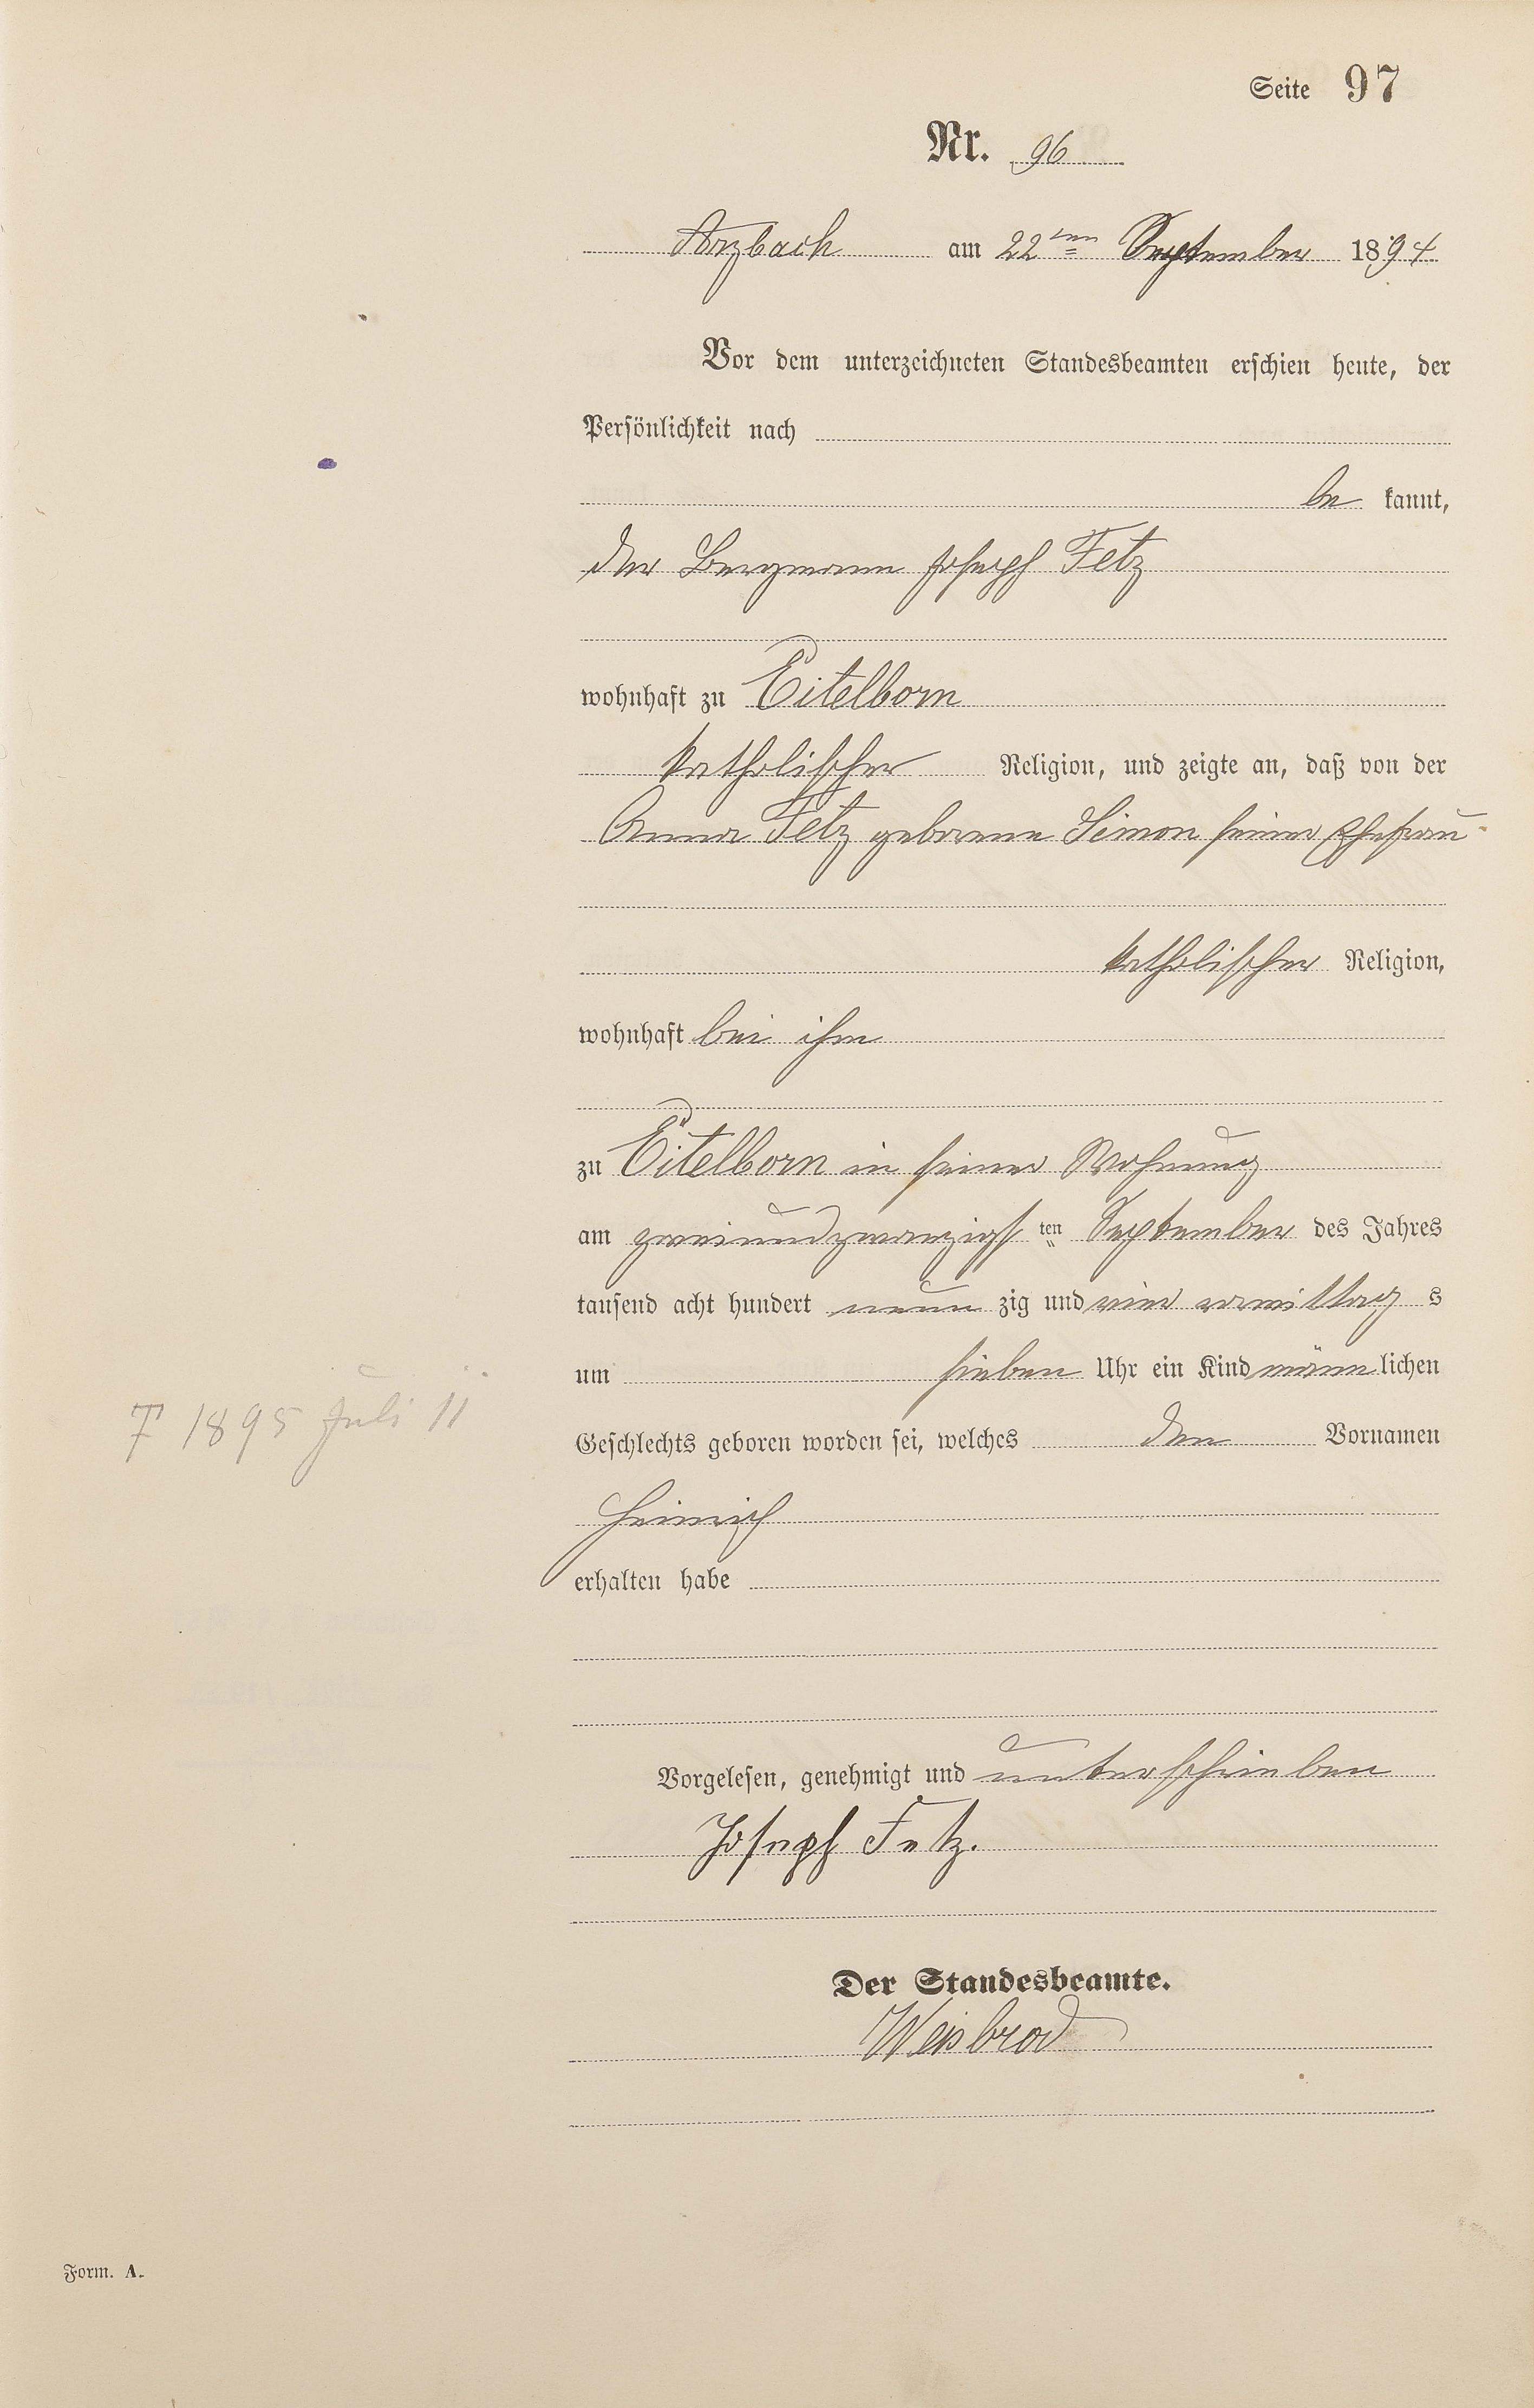 Seite 97
Nr. 96
Arzbach am 22ten September 1894
Vor dem unterzeichneten Standesbeamten erschien heute, der
Persönlichkeit nach
be kannt,
der Bergmann Joseph Fetz
wohnhaft zu Eitelborn
katholischer Religion, und zeigte an, daß von der
Anna Fetz geborene Simon seiner Ehefrau
katholischer Religion,
wohnhaft bei ihm
zu Eitelborn in seiner Wohnung
am zweiundzwanzigst ten September des Jahres
tausend acht hundert neun zig und vier vormittag s
um sieben Uhr ein Kind männ lichen
† 1895 Juli 11
Geschlechts geboren worden sei, welches den Vornamen
Heinrich
erhalten habe
Vorgelesen, genehmigt und unterschrieben
Joseph Fetz.
Der Standesbeamte.
Weisbrod
Form. A.